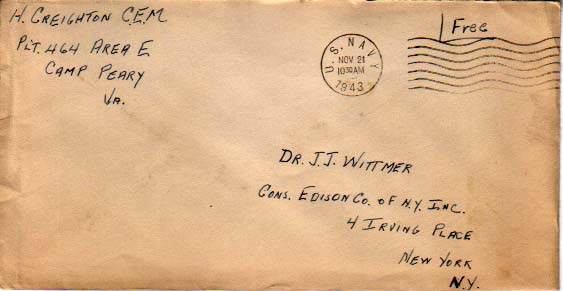 H. CREIGHTON C.E.M.
PLT. 464 AREA E
CAMP PEARY
VA.
U.S. NAVY
NOV 21
10 30 AM
1943
Free
DR. J.J. WITTMER
CONS. EDISON CO. OF N.Y. INC.
4 IRVING PLACE
NEW YORK
N.Y.